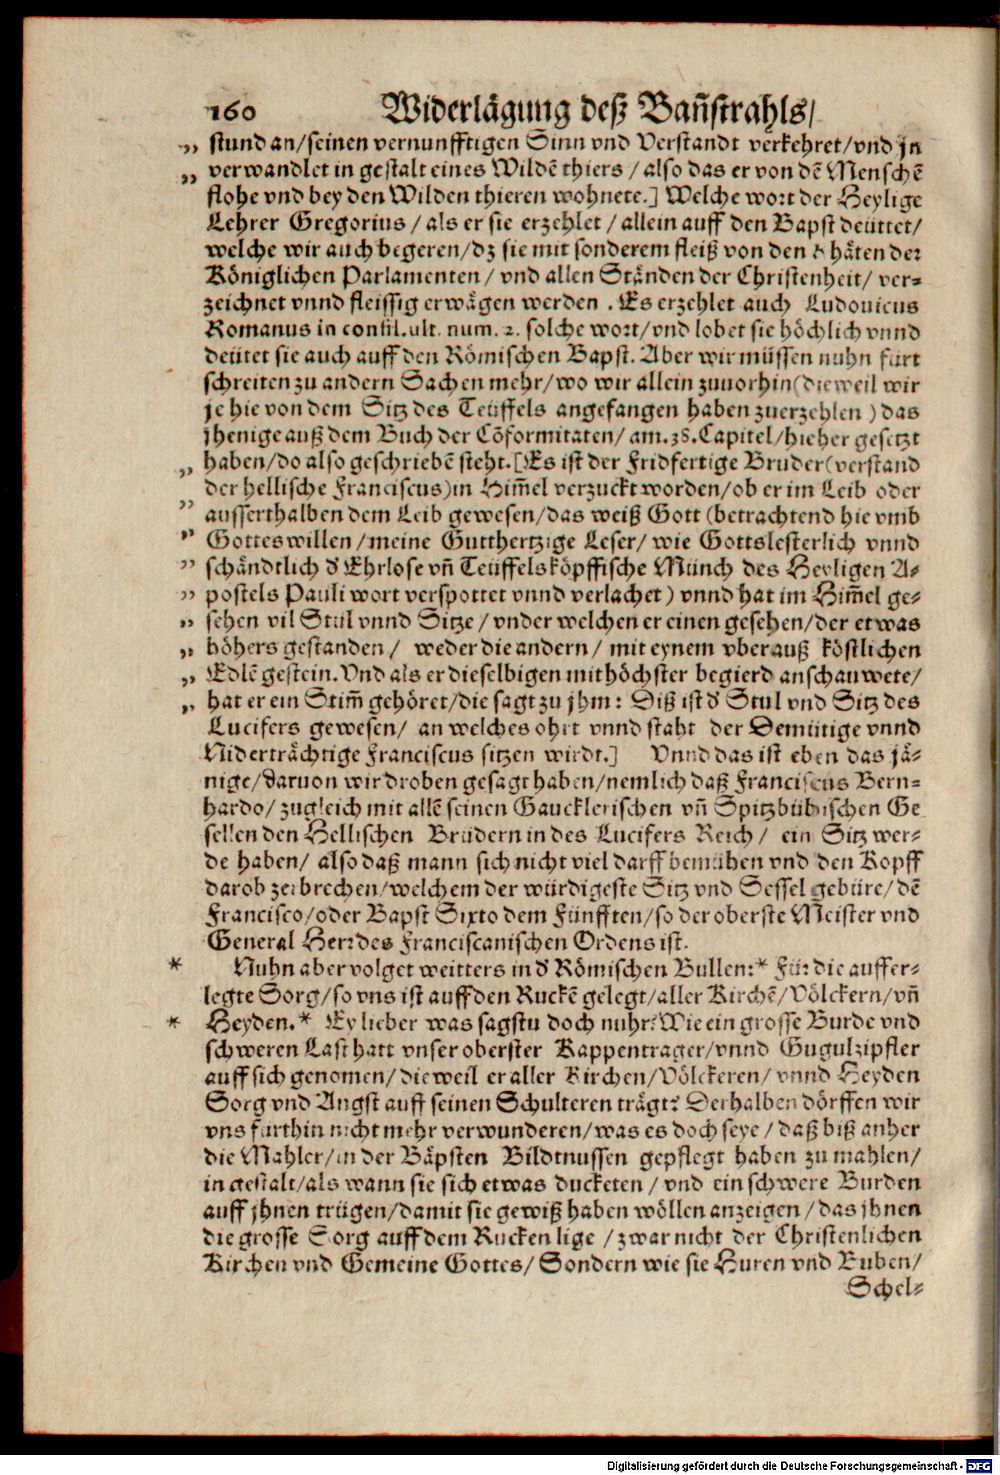 160 Widerlägung deß Bañstrahls/
„ stund an/seinen vernunfftigen Sinn vnd Verstandt verkehret/vnd jn
„ verwandlet in gestalt eines Wildē thiers / also das er von dē Menschē
flohe vnd bey den Wilden thieren wohnete.] Welche wort der Heylige
Lehrer Gregorius / als er sie erzehlet / allein auff den Bapst deüttet/
welche wir auch begeren/dz sie mit sonderem fleiß von den häten der
Königlichen Parlamenten / vnd allen Ständen der Christenheit/ ver-
zeichnet vnnd fleissig erwägen werden . Es erzehlet auch Ludouicus
Romanus in consil. ult. num. 2. solche wort/vnd lobet sie höchlich vnnd
deütet sie auch auff den Römischen Bapst. Aber wir müssen nuhn fürt
schreiten zu andern Sachen mehr/wo wir allein zuuorhin (dieweil wir
je hie von dem Sitz des Teüffels angefangen haben zuerzehlen ) das
jhenige auß dem Buch der Cōformitaten/ am. 38. Capitel/hieher gesetzt
„ haben/do also geschriebē steht.[Es ist der Fridfertige Bruder(verstand
„ der hellische Franciscus)in Him̃el verzuckt worden/ob er im Leib oder
„ ausserthalben dem Leib gewesen/das weiß Gott (betrachtend hie vmb
Gottes willen /meine Gutthertzige Leser/ wie Gottslesterlich vnnd
„ schändtlich d' Ehrlose vñ Teüffelsköpffische Münch des Heyligen A-
„ postels Pauli wort verspottet vnnd verlachet ) vnnd hat im Him̃el ge-
„ sehen vil Stül vnnd Sitze / vnder welchen er einen gesehen/der etwas
„ höhers gestanden / weder die andern / mit eynem vberauß köstlichen
„ Edlē gestein. Vnd als er dieselbigen mit höchster begierd anschauwete/
„ hat er ein Stim̃ gehöret/die sagt zu jhm : Diß ist d' Stul vnd Sitz des
Lucifers gewesen/ an welches ohrt vnnd staht der Demütige vnnd
Niderträchtige Franciscus sitzen wirdt.] Vnnd das ist eben das jä-
nige/daruon wir droben gesagt haben/nemlich daß Franciscus Bern-
hardo/ zugleich mit allē seinen Gaucklerischen vñ Spitzbübischen Ge
sellen den Hellischen Brüdern in des Lucifers Reich / ein Sitz wer-
de haben/ also daß mann sich nicht viel darff bemühen vnd den Kopff
darob zerbrechen/welchem der würdigeste Sitz vnd Sessel gebüre/dē
Francisco/oder Bapst Sixto dem Fünfften/so der oberste Meister vnd
General Herr des Franciscanischen Ordens ist.
* Nuhn aber volget weitters in d' Römischen Bullen:* Für die auffer-
legte Sorg/so vns ist auff den Ruckē gelegt/aller Kirchē/Völckern/vñ
* Heyden.* Ey lieber was sagstu doch nuhr? Wie ein grosse Burde vnd
schweren Last hatt vnser oberster Kappentrager/vnnd Gugulzipfler
auff sich genomen/dieweil er aller Kirchen/Völckeren/ vnnd Heyden
Sorg vnd Angst auff seinen Schulteren trägt? Derhalben dörffen wir
vns fürthin nicht mehr verwunderen/was es doch seye / daß biß anher
die Mahler/in der Bäpsten Bildtnussen gepflegt haben zu mahlen/
in gestalt/als wann sie sich etwas ducketen / vnd ein schwere Burden
auff jhnen trügen/damit sie gewiß haben wöllen anzeigen / das jhnen
die grosse Sorg auff dem Rucken lige / zwar nicht der Christenlichen
Kirchen vnd Gemeine Gottes/ Sondern wie sie Huren vnd Buben/
Schel-
Digitalisierung gefördert durch die Deutsche Forschungsgemeinschaft - DFG